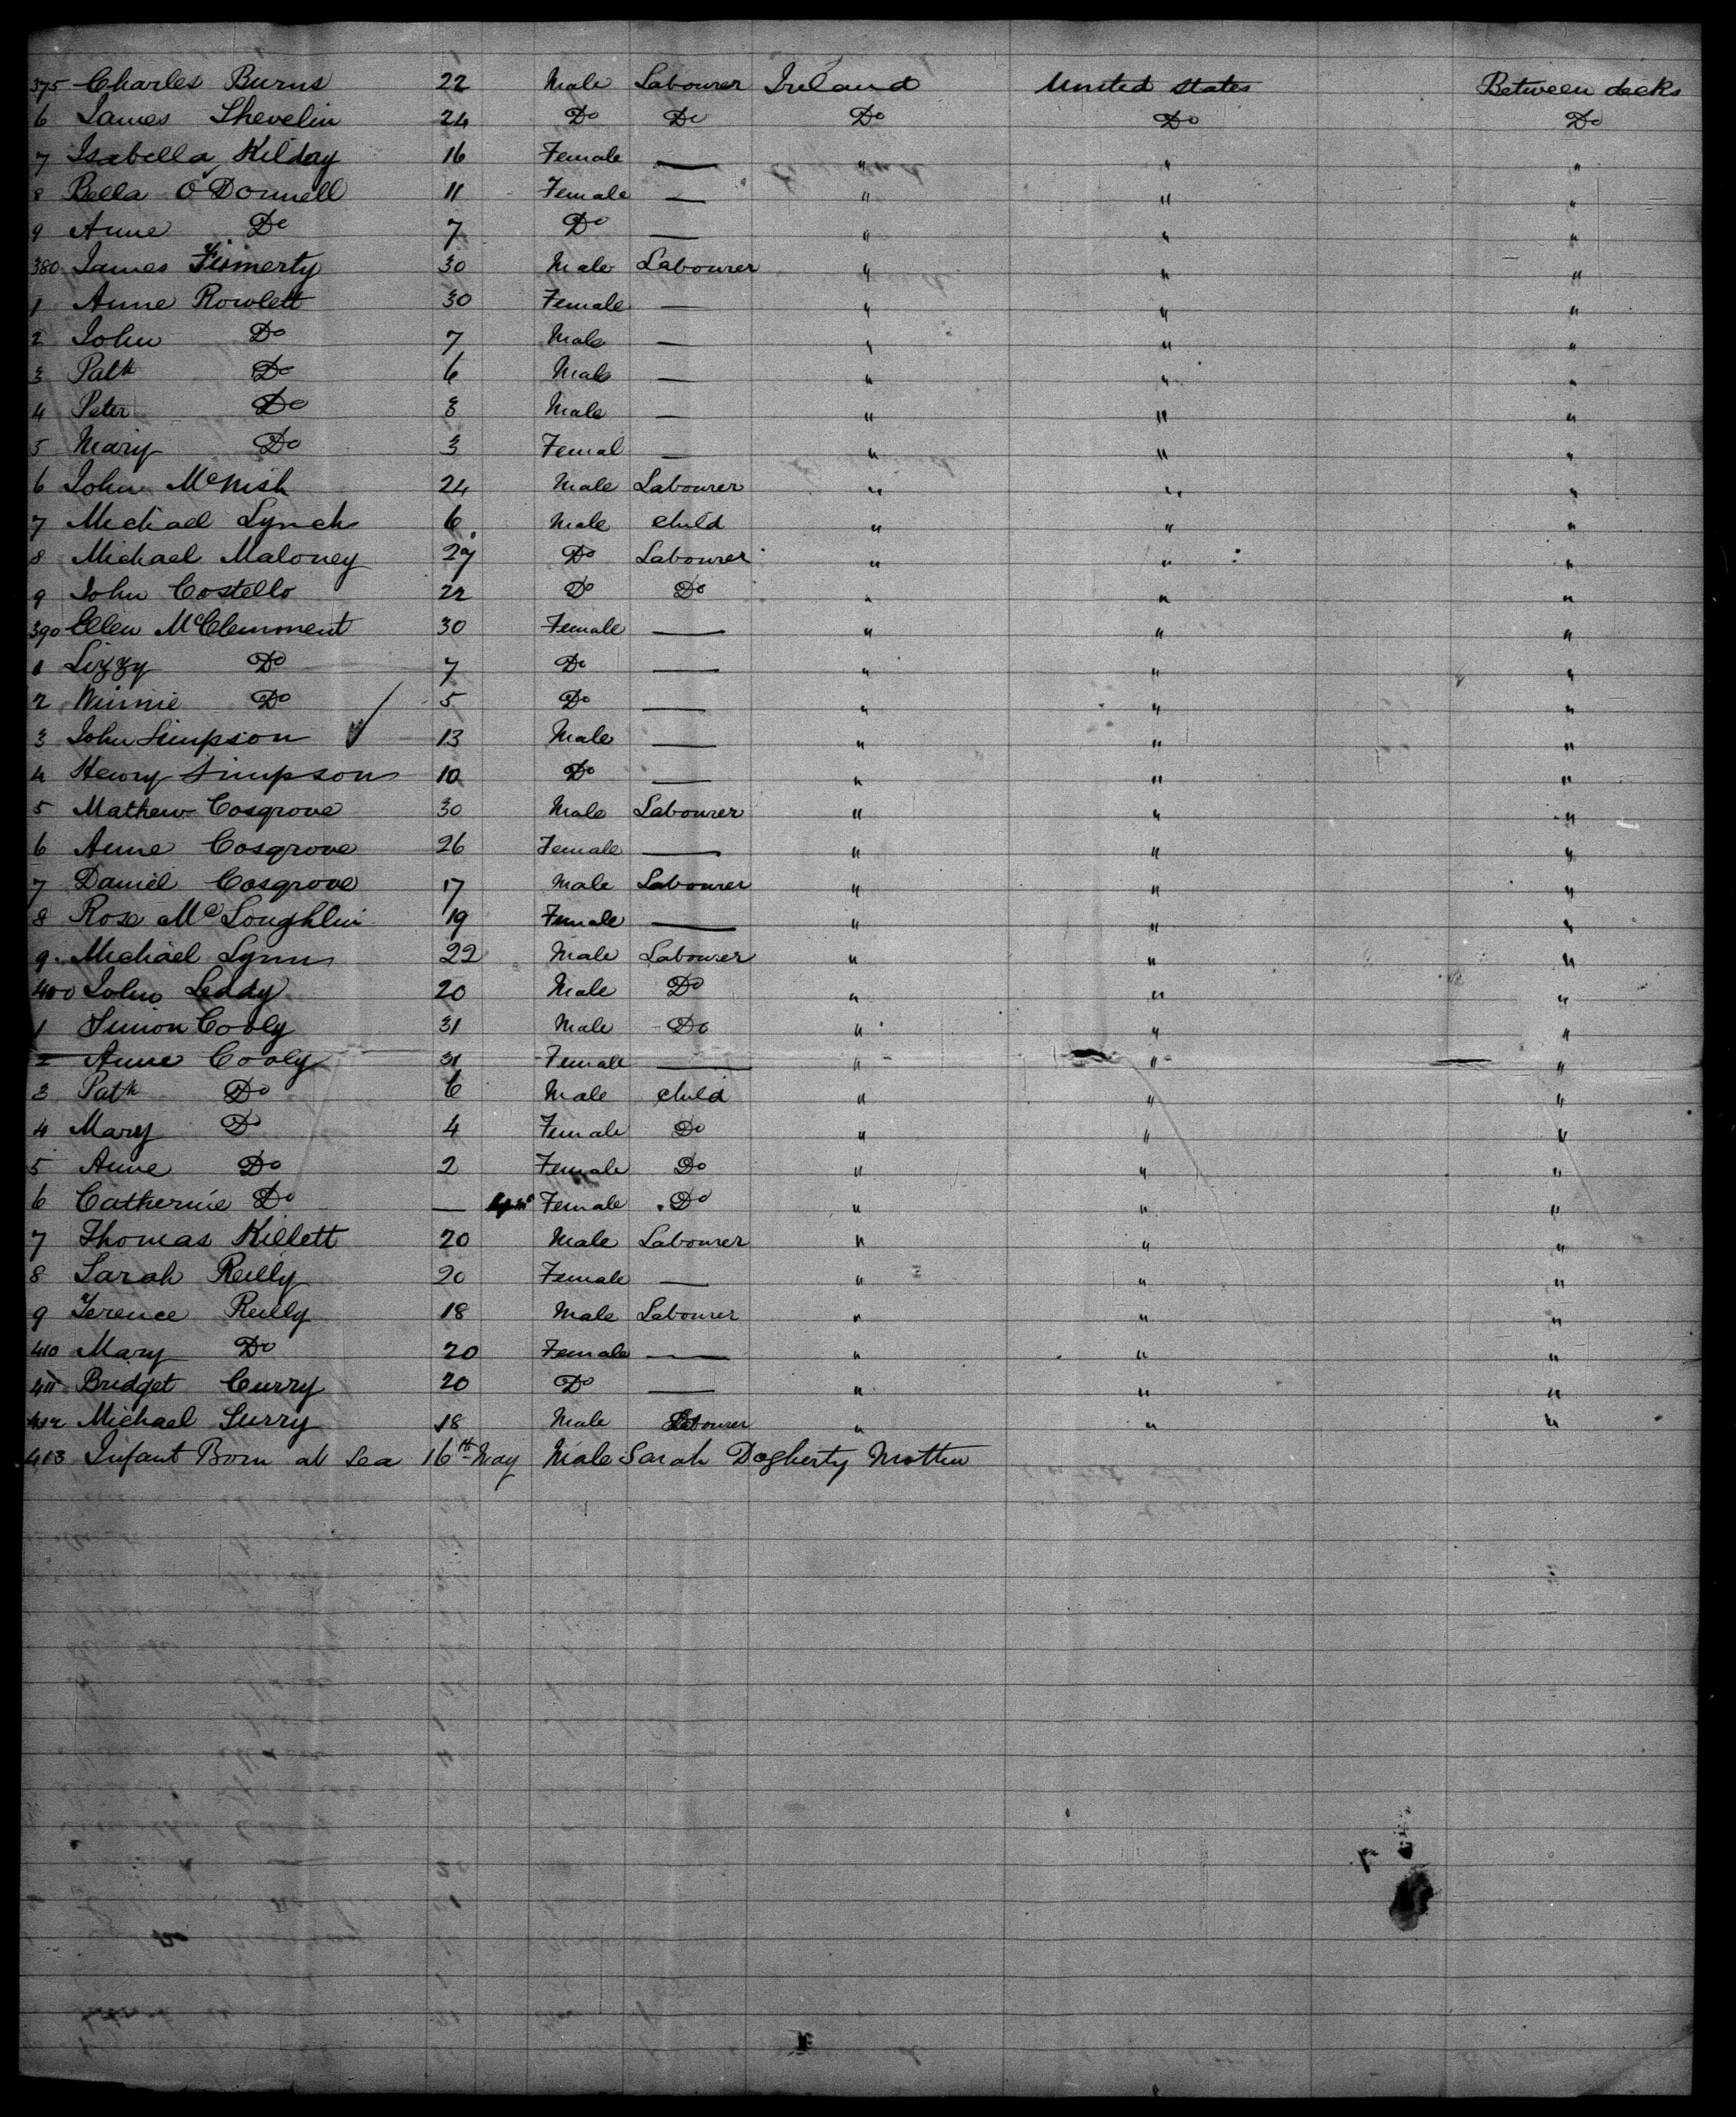 375 Charles Burns 22 Male Labourer Ireland United States Between decks
6 James Shevelin 24 Do Do Do Do Do
7 Isabella Kilday 16 Female — " " "
8 Bella O'Donnell 11 Female — " " "
9 Anne Do 7 Do — " " "
380 James Finnerty 30 Male Labourer " " "
1 Anne Rowlett 30 Female — " " "
2 John Do 7 Male — " " "
3 Patk Do 6 Male — " " "
4 Peter Do 3 Male — " " "
5 Mary Do 3 Femal — " " "
6 John McNish 24 Male Labourer " " "
7 Michael Lynch 6 Male child " " "
8 Michael Maloney 27 Do Labourer " " "
9 John Costello 22 Do Do " " "
390 Ellen McClemment 30 Female — " " "
1 Lizzy Do 7 Do — " " "
2 Winnie Do 5 Do — " " "
3 John Simpson ✓ 13 Male — " " "
4 Henry Simpson 10 Do — " " "
5 Mathew Cosgrove 30 Male Labourer " " "
6 Anne Cosgrove 26 Female — " " "
7 Daniel Cosgrove 17 Male Labourer " " "
8 Rose McLoughlin 19 Female — " " "
9 Michael Lynn 22 Male Labourer " " "
400 John Leddy 20 Male Do " " "
1 Simon Cooly 31 Male Do " " "
2 Anne Cooly 31 Female — " " "
3 Patk Do 6 Male child " " "
4 Mary Do 4 Female Do " " "
5 Anne Do 2 Female Do " " "
6 Catherine Do — Female Do " " "
7 Thomas Killett 20 Male Labourer " " "
8 Sarah Reilly 20 Female — " " "
9 Terence Reilly 18 Male Labourer " " "
410 Mary Do 20 Female — " " "
411 Bridget Curry 20 Do — " " "
412 Michael Surry 18 Male Labourer " " "
413 Infant Born at Sea 16th May Male Sarah Dogherty Mother